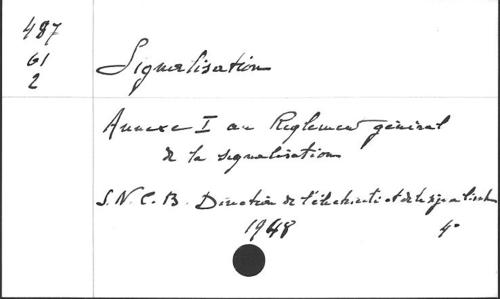 487
61
2
Signalisation
Annexe I au Règlement général
de la signalisation
S.N.C.B. Direction de l'électricité et de la signalisation
1948 4°